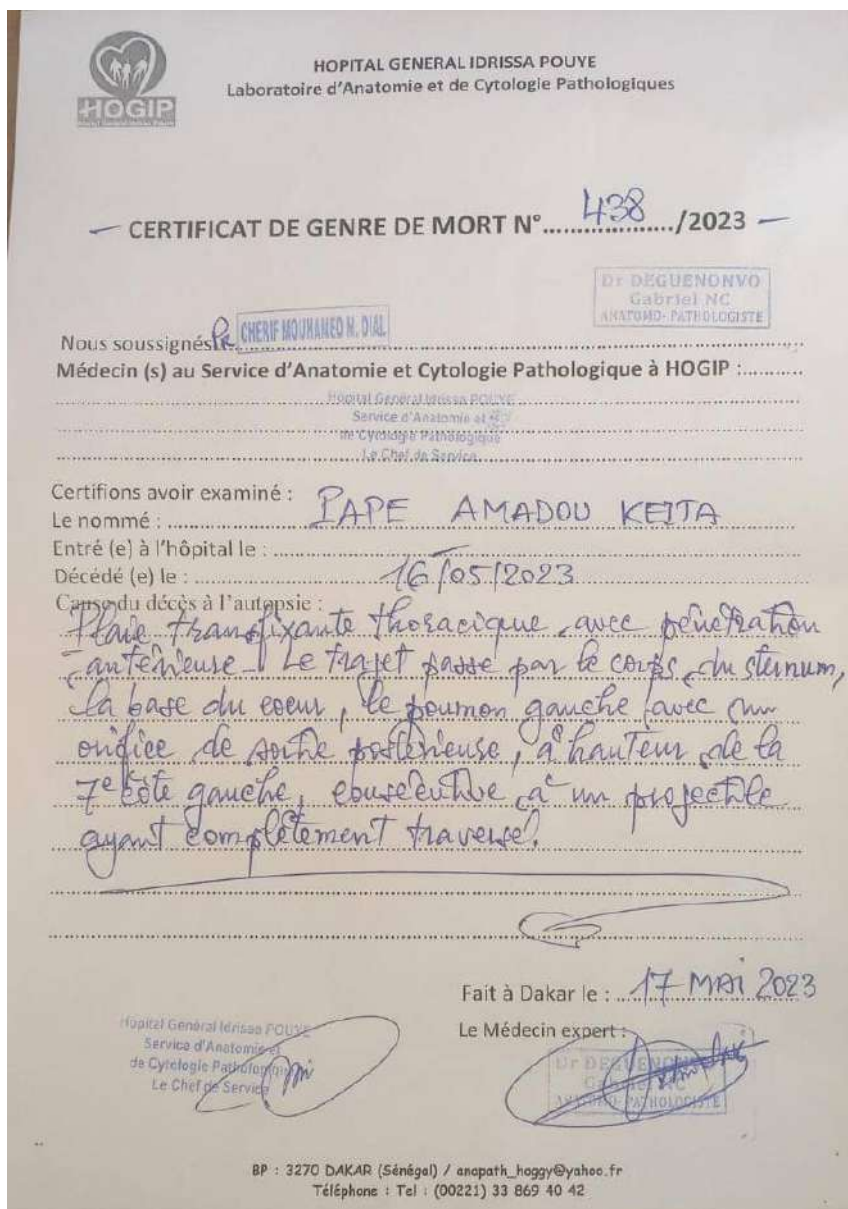 HOGIP
HOPITAL GENERAL IDRISSA POUYE
Laboratoire d'Anatomie et de Cytologie Pathologiques
— CERTIFICAT DE GENRE DE MORT N°....438..../2023 —
Dr DEGUENONVO
Gabriel NC
ANATOMO-PATHOLOGISTE
Nous soussignés Pr CHERIF MOUHAMED M. DIAL
Médecin (s) au Service d'Anatomie et Cytologie Pathologique à HOGIP :
Hopital Général Idrissa POUYE
Service d'Anatomie et
de Cytologie Pathologique
Le Chef de Service
Certifions avoir examiné :
Le nommé : PAPE AMADOU KEITA
Entré (e) à l'hôpital le : —
Décédé (e) le : 16/05/2023
Cause du décès à l'autopsie :
Plaie transfixante thoracique, avec pénétration
antérieuse. Le trajet passe par le corps du sternum,
la base du coeur, le poumon gauche avec un
orifice de sortie postérieuse, à hauteur de la
7e côte gauche, consécutive à un projectile
ayant complètement traversé.
Fait à Dakar le : 17 MAI 2023
Le Médecin expert :
Hopital Général Idrissa POUYE
Service d'Anatomie et
de Cytologie Pathologique
Le Chef de Service
Dr DEGUENONVO
Gabriel NC
ANATOMO-PATHOLOGISTE
BP : 3270 DAKAR (Sénégal) / anapath_hoggy@yahoo.fr
Téléphone : Tel : (00221) 33 869 40 42